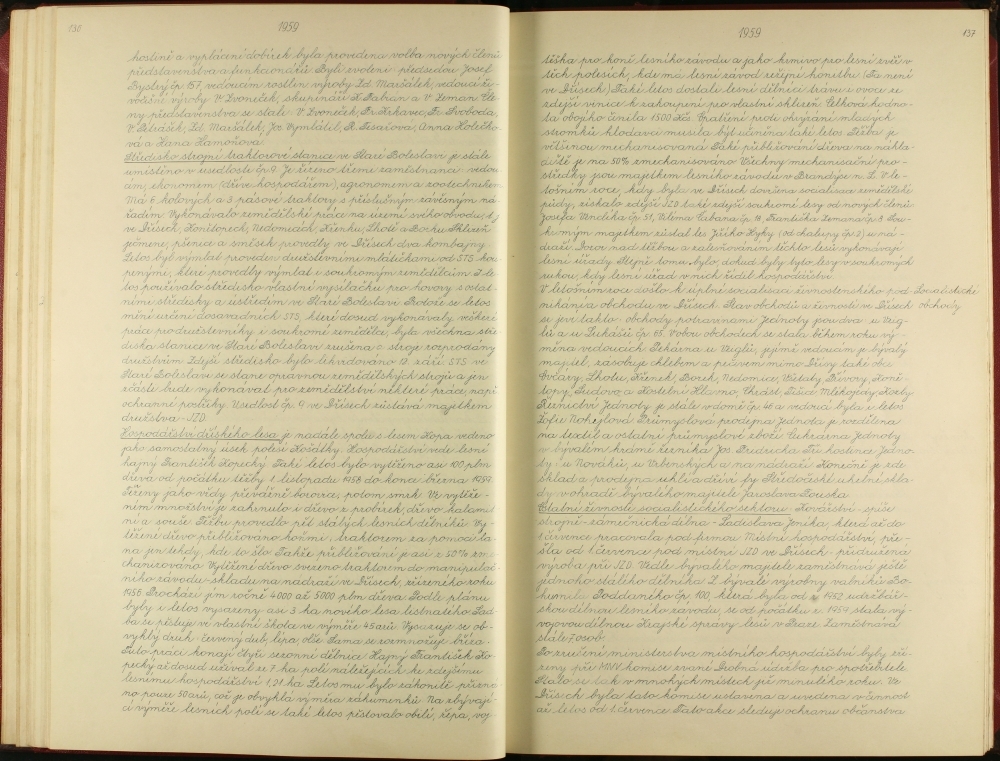 136
1959
hostině a vyplácení dobírek byla provedena volba nových členů
představenstva a funkcionářů. Byli zvoleni: předsedou Josef
Bystrý čp. 157, vedoucím rostlin. výroby Zd. Maršálek, vedoucí ži-
vočišné výroby V. Dvoneček, skupináři F. Fabián a V. Zeman. Čle-
ny představenstva se stali: V. Dvoneček, Fr. Krkavec, Fr. Svoboda,
V. Petrásek, Zd. Maršálek, Jos. Vymlátil, R. Tesařova, Anna Holečko-
va a Hana Hamoňova.
Středisko strojní traktorové stanice ve Staré Boleslavi je stále
umístěno v usedlosti čp. 9. Je řízeno třemi zaměstnanci: vedou-
cím, ekonomem (dříve hospodářem), agronomem a zootechnikem.
Má 6 kolových a 3 pásové traktory s příslušným závěsným ná-
řadím. Vykonávalo zemědělské práce na území svého obvodu, t.j.
ve Dřísech, Konětopech, Nedomicích, Křenku, Lhotě a Borku. Sklizeň
ječmene, pšenice a směsek provedly ve Dřísech dva kombajny.
Letos byl výmlat proveden družstevními mlátičkami od STS kou-
penými, které provedly výmlat i soukromým zemědělcům. I le-
tos používalo středisko vlastní vysílačku pro hovory s ostat-
ními středisky a ústředím ve Staré Boleslavi. Protože se letos
mění určení dosavadních STS, které dosud vykonávaly veškeré
práce pro družstevníky i soukromé zemědělce, byla všechna stře-
diska stanice ve Staré Boleslavi zrušena a stroje rozprodány
družstvům. Zdejší středisko bylo likvidováno 17. září. STS ve
Staré Boleslavi se stane opravnou zemědělských strojů a jen
zčásti bude vykonávat pro zemědělství některé práce, např.
ochranné postřiky. Usedlost čp. 9 ve Dřísech zůstává majetkem
družstva JZD.
Hospodářství dříského lesa je nadále spolu s lesem Kopa vedeno
jako samostatný úsek polesí Kosátky. Hospodářství vede lesní
hajný František Kopecký. Také letos bylo vytěženo asi 100 plm
dřeva od počátku těžby 1. listopadu 1958 do konce března 1959.
Těženy jako vždy převážně borovice, potom smrk. Ve vytěže-
ném množství je zahrnuto i dřevo z probírek, dřevo kalamit-
ní a souše. Těžbu provedlo pět stálých lesních dělníků. Vy-
těžené dřevo přibližováno koňmi, traktorem za pomoci la-
na jen tehdy, kde to šlo. Takže přibližování je asi z 50% zme-
chanizováno. Vytěžené dřevo svezeno traktorem do manipulač-
ního závodu-skladu na nádraží ve Dřísech, zřízeného roku
1956. Prochází jím ročně 4000 až 5000 plm dřeva. Podle plánu
byly i letos vysazeny asi 3 ha nového lesa listnatého. Sad-
ba se pěstuje ve vlastní školce ve výměře 45 arů. Vysazuje se ob-
vyklý druh: červený dub, lípa, olše. Sama se rozmnožuje bříza.
Tuto práci konají čtyři sezonní dělnice. Hajný František Ko-
pecký až dosud užíval ze 7 ha polí náležejících ke zdejšímu
lesnímu hospodářství 1,21 ha. Letos mu bylo zákonitě přizná-
no pouze 50 arů, což je obvyklá výměra záhumenků. Na zbývají-
cí výměře lesních polí se také letos pěstovalo obilí, řepa, voj-
1959
137
těška pro koně lesního závodu a jako krmivo pro lesní zvěř v
těch polesích, kde má lesní závod režijní honitbu. (Ta není
ve Dřísech.) Také letos dostali lesní dělníci trávu i ovoce ze
zdejší vinice k zakoupení pro vlastní sklizeň. Celková hodno-
ta obojího činila 1500 Kčs. Opatření proti ohryzání mladých
stromků hlodavci musila být učiněna také letos. Těžba je
většinou mechanisovaná. Také přibližování dřeva na náhla-
diště je na 50% zmechanisováno. Všechny mechanisační pro-
středky jsou majetkem lesního závodu v Brandýse n. L. V le-
tošním roce, kdy byla ve Dřísech dovršena socialisace zemědělské
půdy, získalo zdejší JZD také zdejší soukromé lesy od nových členů:
Josefa Vrndika čp. 51, Viléma Cubana čp. 18, Františka Zemana čp. 3. Sou-
kromým majetkem zůstal les Jiřího Hyky (od chalupy čp. 2) u ná-
draží. Dozor nad těžbou a zalesňováním těchto lesů vykonávají
lesní úřady. Stejně tomu bylo, dokud byly tyto lesy v soukromých
rukou, kdy lesní úřad v nich řídil hospodářství.
V letošním roce došlo k úplné socialisaci živnostenského pod- Socialističtí
nikání a obchodu ve Dřísech. Stav obchodů a živností ve Dřísech obchody
se jeví takto: obchody potravinami Jednoty jsou dva: u Vaig-
lů a u Lukášů čp. 65. V obou obchodech se stala během roku vý-
měna vedoucích. Pekárna u Vaiglů, jejímž vedoucím je bývalý
majitel, zásobuje chlebem a pečivem mimo Dřísy také obce
Ovčáry, Lhotu, Křenek, Borek, Nedomice, Všetaty, Přívory, Koně-
topy, Sudovo a Kostelní Hlavno, Chrást, Tišice, Mlékojedy, Kozly.
Řeznictví Jednoty je stále v domě čp. 46 a vedoucí byla i letos
Žofie Nohejlová. Průmyslová prodejna Jednota je rozdělena
na textil a ostatní průmyslové zboží. Cukrárna Jednoty
v bývalém krámě řezníka Jos. Predricka. Tři hostince Jedno-
ty: u Nováků, u Vrbenských a na nádraží. Konečně je zde
sklad a prodejna uhlí a dříví fy Středočeské uhelné skla-
dy v ohradě bývalého majitele Jaroslava Rouska.
Ostatní živnosti socialistického sektoru: Kovářství - spíše
strojně-zámečnická dílna - Ladislava Jeníka, která až do
1. července pracovala pod firmou Místní hospodářství, pře-
šla od 1. července pod místní JZD ve Dřísech - přidružená
výroba při JZD. Vedle bývalého majitele zaměstnává ještě
jednoho stálého dělníka. Z bývalé výrobny valníků Bo-
humila Poddaného čp. 100, která byla od r. 1952 údržbář-
skou dílnou lesního závodu, se od počátku r. 1959 stala vý-
vojovou dílnou Krajské správy lesů v Praze. Zaměstnává
stále 7 osob.
Po zrušení ministerstva místního hospodářství byly zří-
zeny při MNV komise zvané Drobná údržba pro spotřebitele.
Stalo se tak v mnohých místech již minulého roku. Ve
Dřísech byla tato komise ustavena a uvedena v činnost
až letos od 1. července. Tato akce sleduje ochranu občanstva